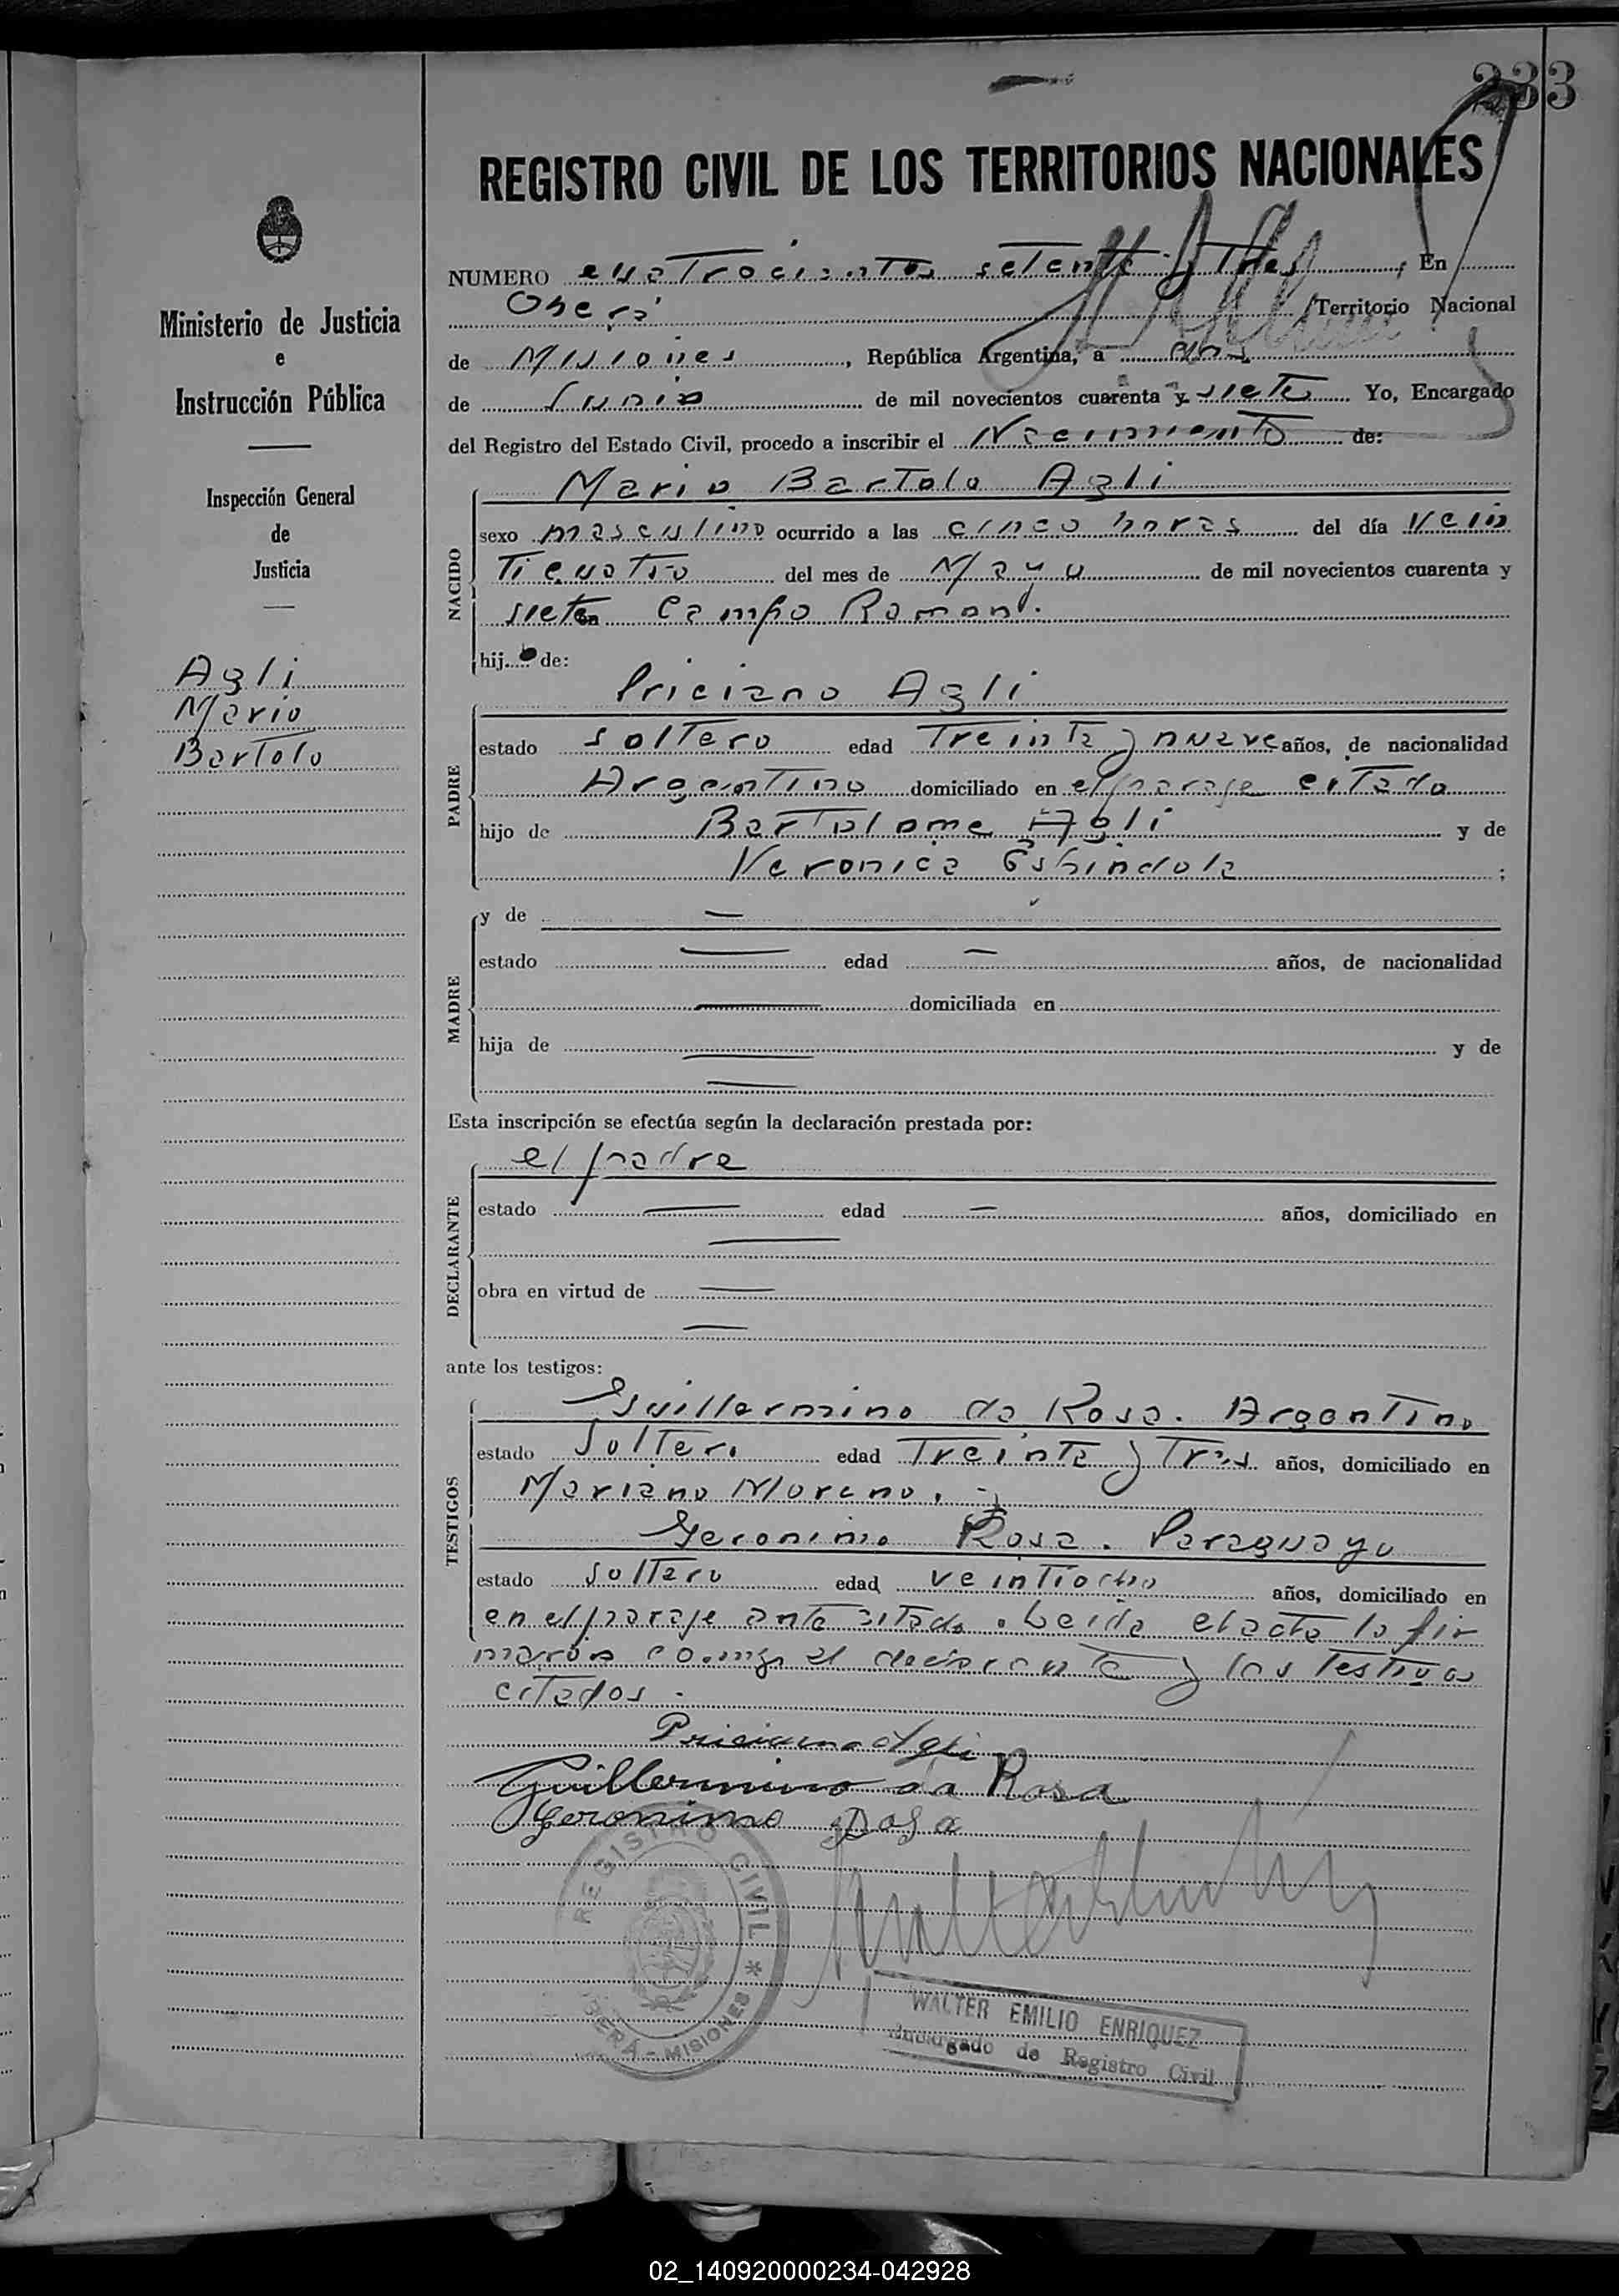 233
REGISTRO CIVIL DE LOS TERRITORIOS NACIONALES
NUMERO cuatrocientos setenta y Tres, En
Oberá Territorio Nacional
de Misiones, República Argentina, a dos
de Junio de mil novecientos cuarenta y siete Yo, Encargado
del Registro del Estado Civil, procedo a inscribir el Nacimiento de:
Ministerio de Justicia
e
Instrucción Pública
Inspección General
de
Justicia
Agli
Mario
Bartolo
NACIDO
Mario Bartolo Agli
sexo masculino ocurrido a las cinco horas del día Vein
Ticuatro del mes de Mayo de mil novecientos cuarenta y
siete en Campo Ramon.
hijo de:
PADRE
Priciano Agli
estado solTero edad Treinta y nueve años, de nacionalidad
ArgenTino domiciliado en el paraje citado
hijo de Bartolome Agli y de
Veronica Espindola ;
MADRE
y de —
estado — edad — años, de nacionalidad
— domiciliada en
hija de — y de
—
Esta inscripción se efectúa según la declaración prestada por:
DECLARANTE
el padre
estado — edad — años, domiciliado en
—
obra en virtud de —
—
ante los testigos:
TESTIGOS
Guillermino da Rosa. Argentino
estado Soltero edad Treinta y Tres años, domiciliado en
Mariano Moreno.
Geronimo Rosa. Paraguayo
estado soltero edad veintiocho años, domiciliado en
en el paraje ante citado. Leida el acta la fir
maron conmigo el declarante y los Testigos
citados.
Priciano Agli
Guillermino da Rosa
Geronimo Rosa
REGISTRO CIVIL * OBERÁ - MISIONES
WALTER EMILIO ENRIQUEZ
Encargado de Registro Civil
02_140920000234-042928